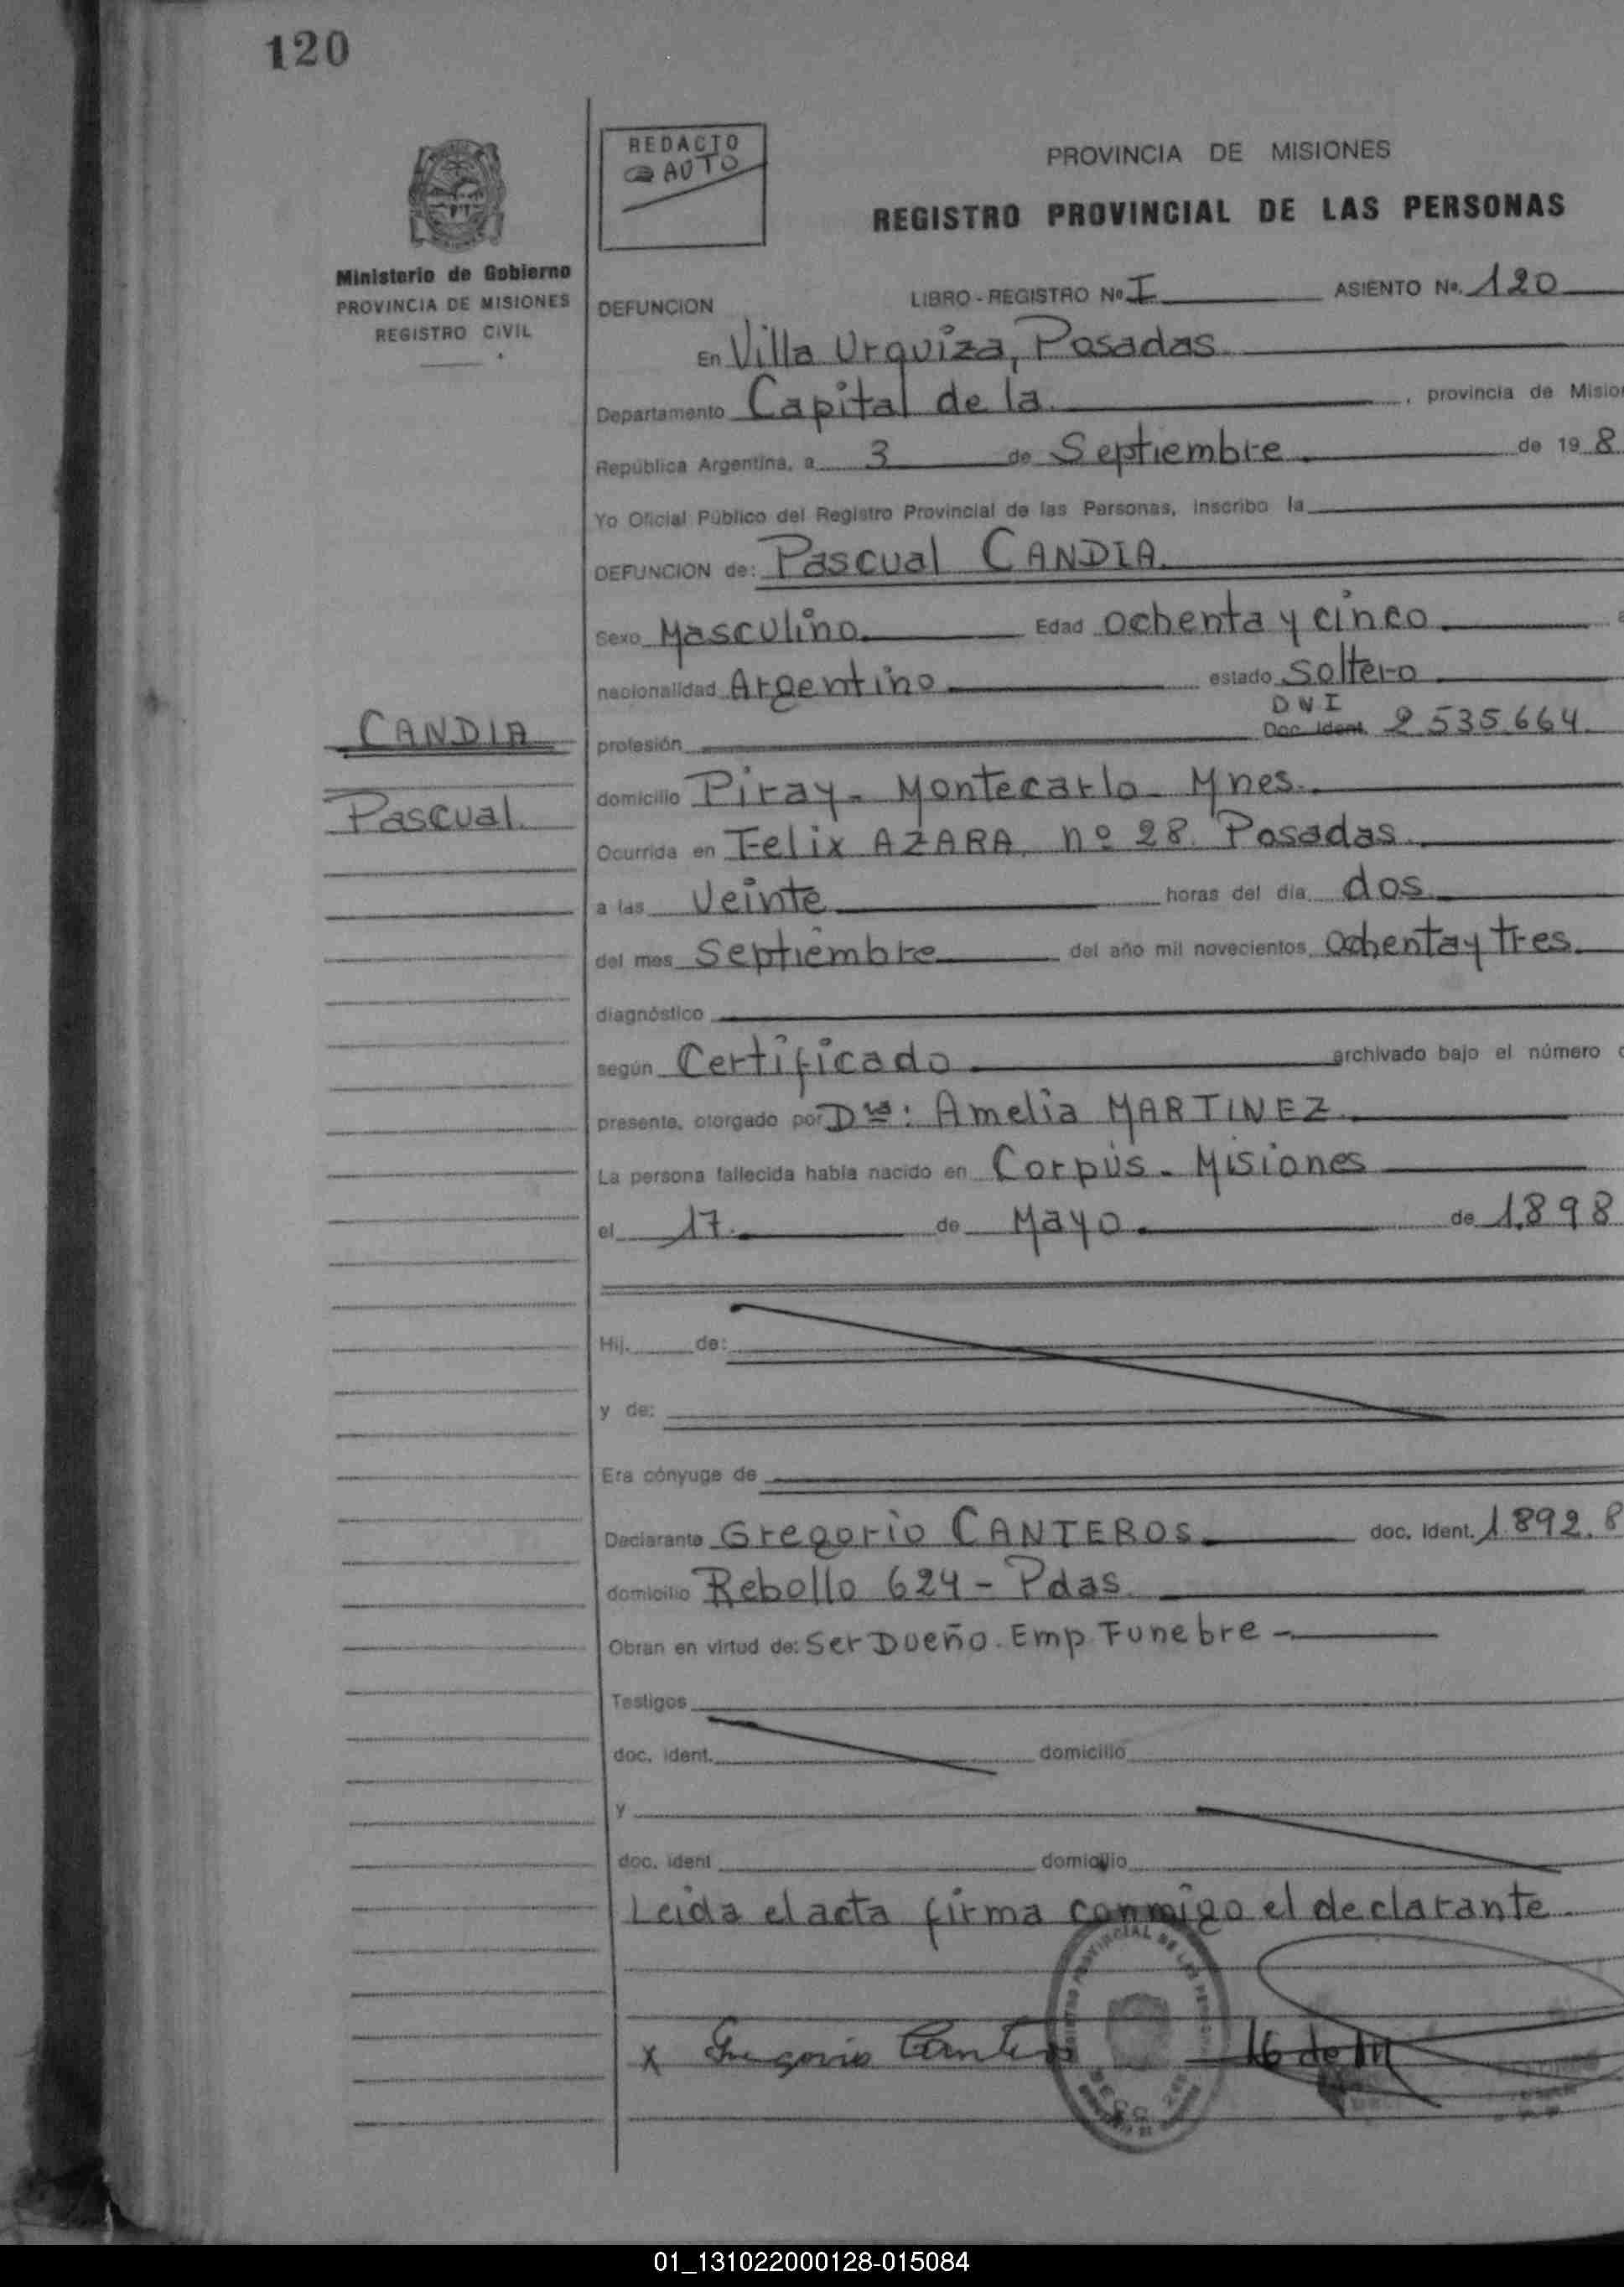 120
REDACTO
AUTO
PROVINCIA DE MISIONES
REGISTRO PROVINCIAL DE LAS PERSONAS
Ministerio de Gobierno
PROVINCIA DE MISIONES
REGISTRO CIVIL
DEFUNCION LIBRO - REGISTRO Nº I ASIENTO Nº. 120
En Villa Urquiza, Posadas
Departamento Capital de la , provincia de Misio
República Argentina, a 3 de Septiembre de 19 8
Yo Oficial Público del Registro Provincial de las Personas, inscribo la
DEFUNCION de: Pascual CANDIA
Sexo Masculino Edad ochenta y cinco
nacionalidad Argentino estado Soltero
CANDIA
profesión DNI Doc. Ident. 2.535.664
Pascual
domicilio Piray - Montecarlo - Mnes.
Ocurrida en Felix AZARA nº 28. Posadas
a las Veinte horas del día dos
del mes Septiembre del año mil novecientos ochenta y tres
diagnóstico
según Certificado archivado bajo el número
presente, otorgado por Dra: Amelia MARTINEZ
La persona fallecida había nacido en Corpus - Misiones
el 17 de Mayo de 1.898
Hij. de:
y de:
Era cónyuge de
Declarante Gregorio CANTEROS doc. Ident. 1.892.8
domicilio Rebollo 624 - Pdas.
Obran en virtud de: Ser Dueño. Emp. Funebre -
Testigos
doc. ident. domicilio
y
doc. ident domicilio
Leida el acta firma conmigo el declarante.
x Gregorio Canteros
01_131022000128-015084